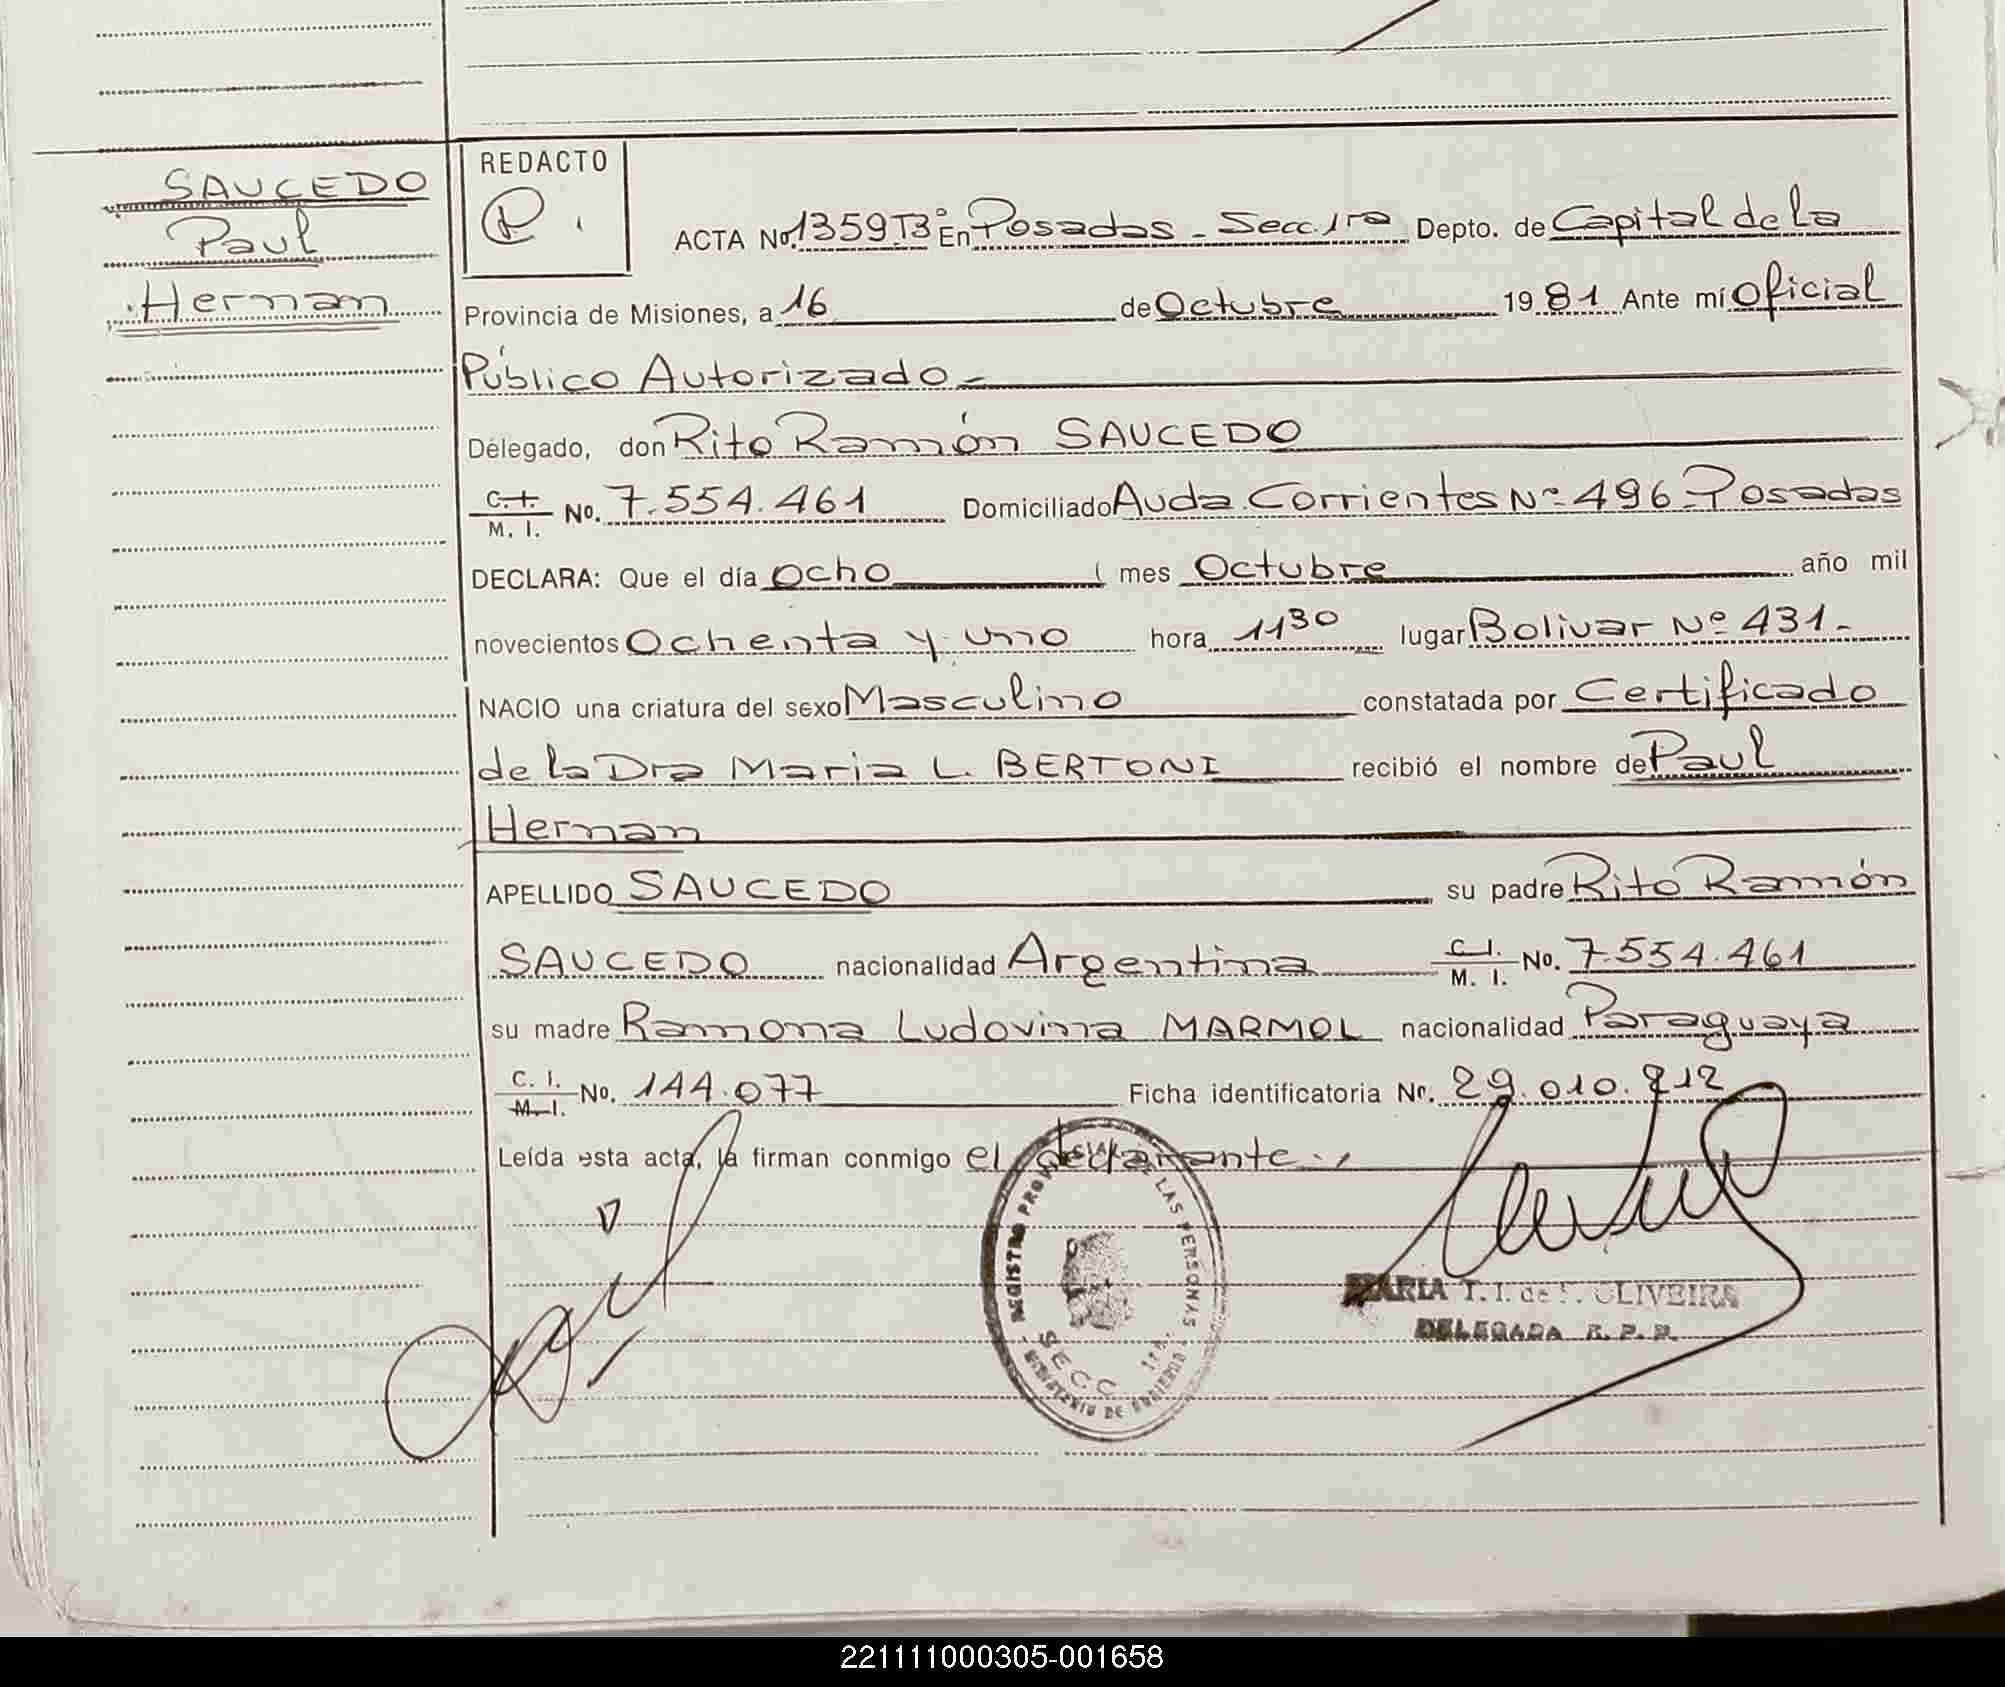 SAUCEDO
Paul
Hernan
REDACTO
P.
ACTA No. 1359 T3° En Posadas - Secc. 1ra Depto. de Capital de la
Provincia de Misiones, a 16 de Octubre 1981 Ante mí Oficial
Público Autorizado -
Delegado, don Rito Ramón SAUCEDO
C. I.
M. I. No. 7.554.461 Domiciliado Avda. Corrientes Nº 496 - Posadas
DECLARA: Que el día ocho mes Octubre año mil
novecientos Ochenta y uno hora 11 30 lugar Bolivar Nº 431 -
NACIO una criatura del sexo Masculino constatada por Certificado
de la Dra Maria L. BERTONI recibió el nombre de Paul
Hernan
APELLIDO SAUCEDO su padre Rito Ramón
SAUCEDO nacionalidad Argentina C. I.
M. I. No. 7.554.461
su madre Ramona Ludovina MARMOL nacionalidad Paraguaya
C. I.
M. I. No. 144.077 Ficha identificatoria Nº. 29.010.212
Leída esta acta, la firman conmigo el declarante.,
REGISTRO PROVINCIAL DE LAS PERSONAS
SECC 1ra.
MINISTERIO DE GOBIERNO
MARIA T. I. de F. OLIVEIRA
DELEGADA R. P. P.
221111000305-001658